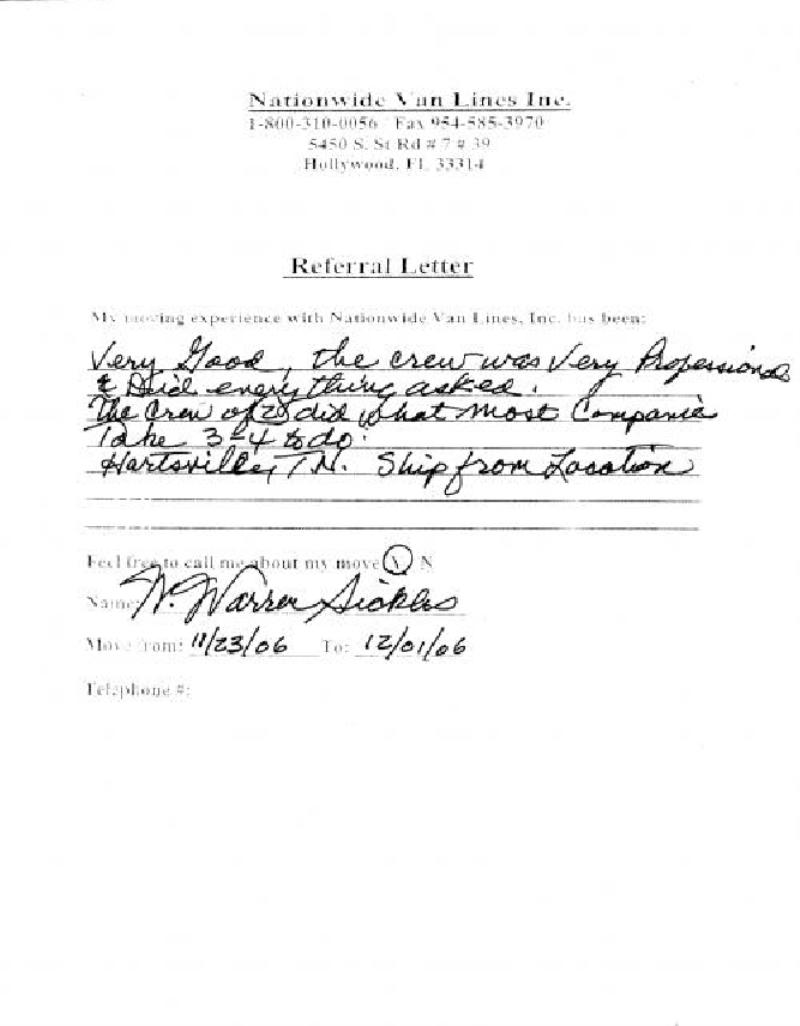 Nationwide Van Lines Inc.
1-800-310-0056 Fax 954-585-3970
5450 S. St Rd # 7 # 39
Hollywood, FL 33314
Referral Letter
My moving experience with Nationwide Van Lines, Inc. has been:
Very Good, the crew was Very Professional
& Did everything asked.
The Crew of did what most Companie
Take 3-4 to do.
Hartsville, TN. Ship from Location
Feel free to call me about my move Y N
Name: W. Warren Sickles
Move from: 11/23/06 To: 12/01/06
Telephone #: